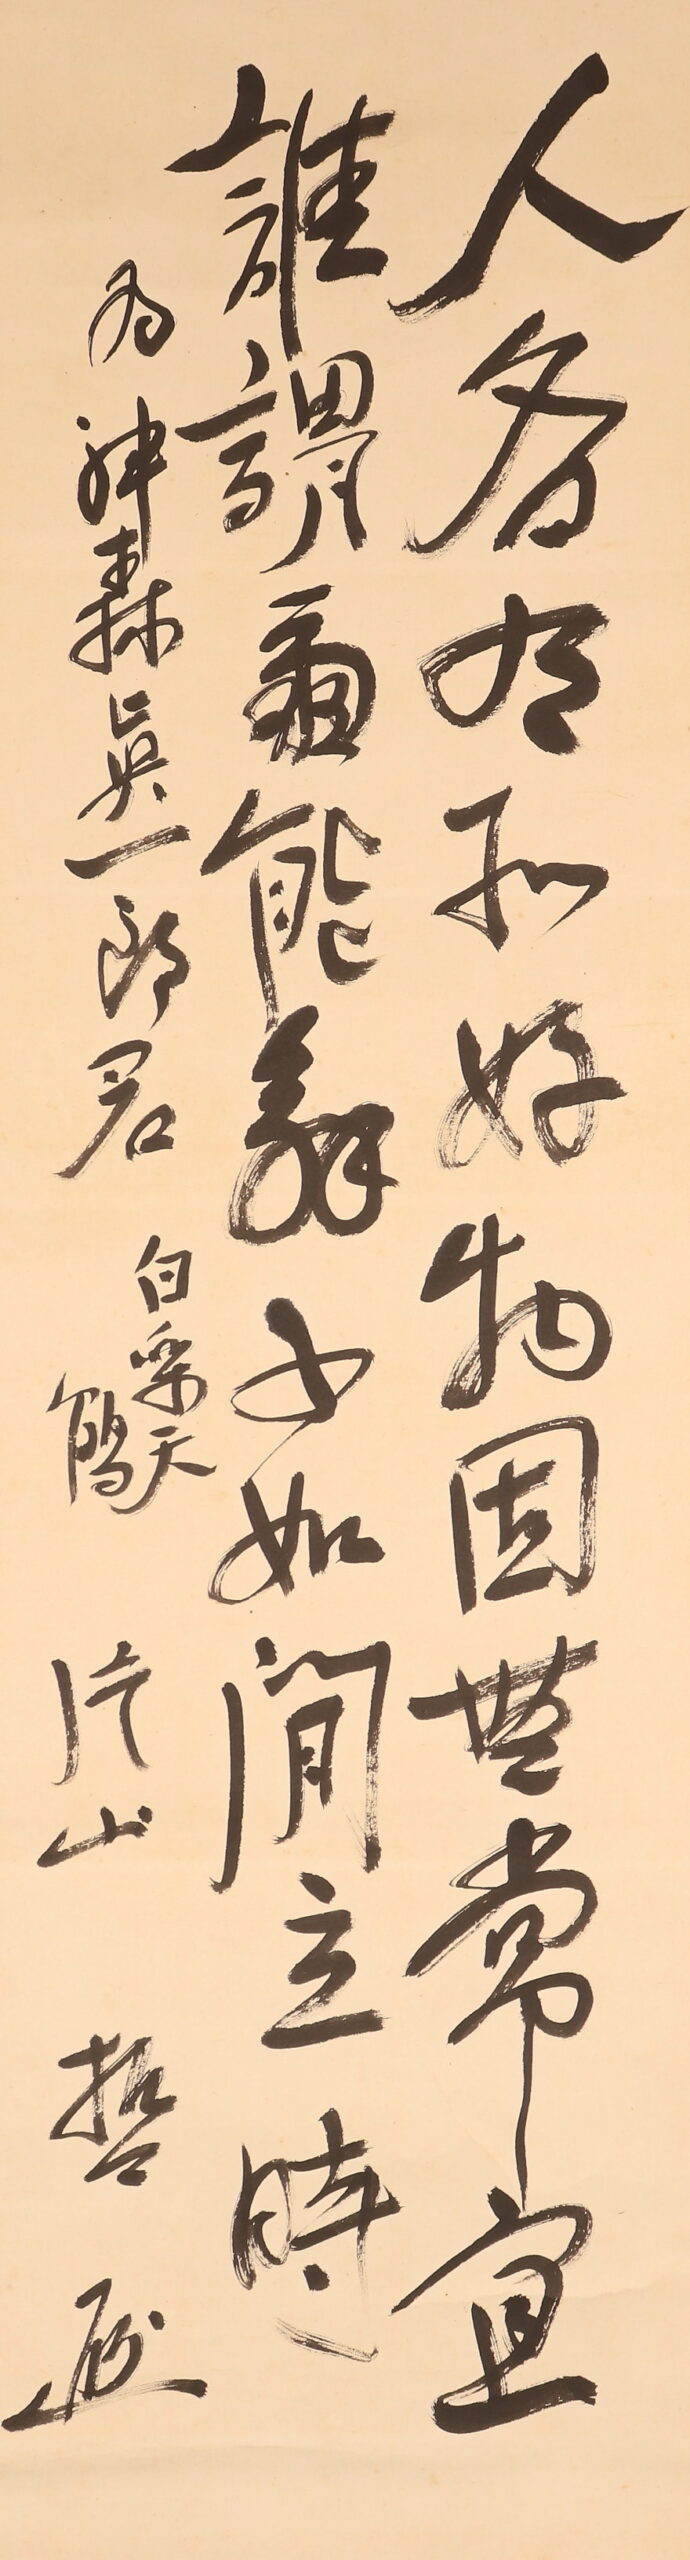 人各有所好物固無常宜
誰謂爾能舞不如閒立時
為眞一郎君
白楽天
鶴
片山哲